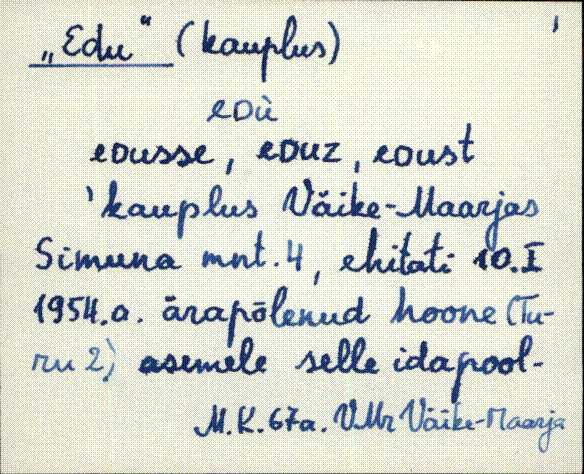 „Edu“ (kauplus)
eᴅù
eᴅusse, eᴅuz, eᴅust
'kauplus Väike-Maarjas
Simuna mnt. 4, ehitati 10.I
1954.a. ärapõlenud hoone (Tu-
ru 2) asemele selle idapool-
M.K. 67a. VMr Väike-Maarja